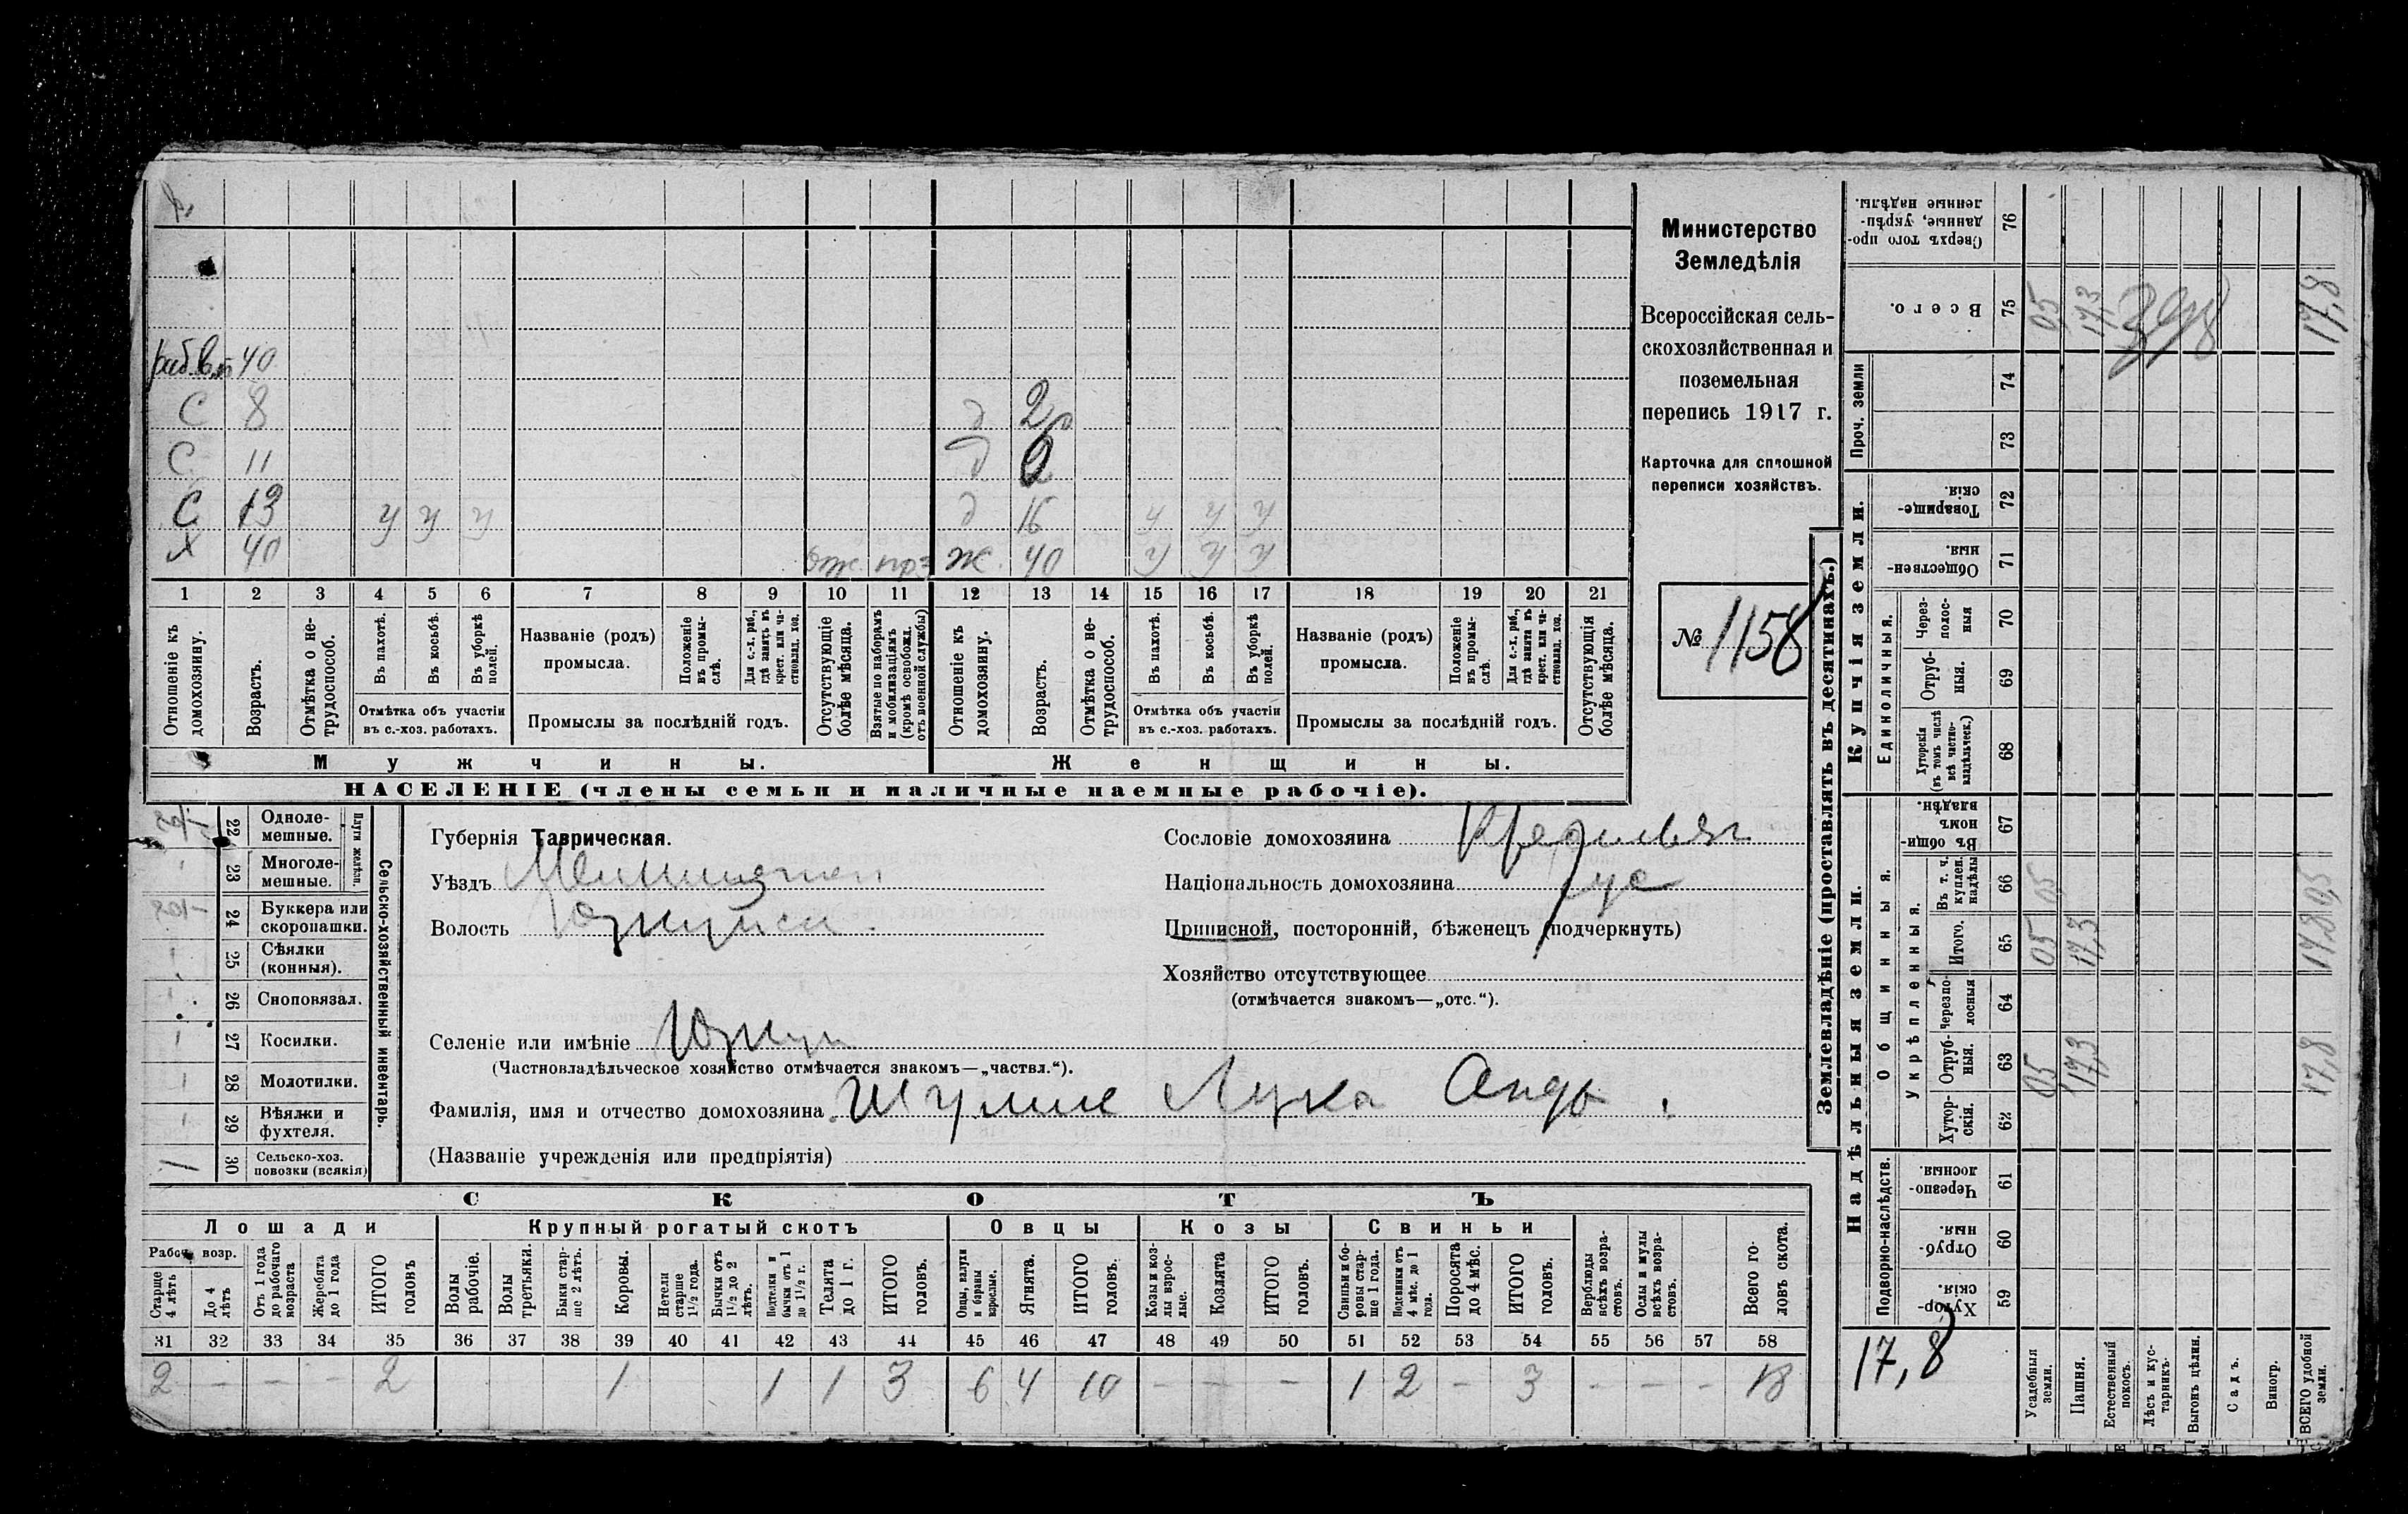 раб. 40
С 8 д 2
С 11 д 6
С 13 у у у д 16 у у у
Х 40 Ж. 40 у у у
1 2 3 4 5 6 7 8 9 10 11 12 13 14 15 16 17 18 19 20 21
Отношеніе къ домохозяину.
Возрастъ.
Отмѣтка о нетрудоспособ.
Въ пахотѣ.
Въ косьбѣ.
Въ уборкѣ полей.
Отмѣтка объ участіи въ с.-хоз. работахъ.
Названіе (родъ) промысла.
Положеніе въ промыслѣ.
Для с.-х. раб., гдѣ занятъ въ крест. или частновлад. хоз.
Промыслы за послѣдній годъ.
Отсутствующіе болѣе мѣсяца.
Взятые по наборамъ и мобилизаціямъ (кромѣ освобожд. отъ военной службы)
Отношеніе къ домохозяину.
Возрастъ.
Отмѣтка о нетрудоспособ.
Въ пахотѣ.
Въ косьбѣ.
Въ уборкѣ полей.
Отмѣтка объ участіи въ с.-хоз. работахъ.
Названіе (родъ) промысла.
Положеніе въ промыслѣ.
Для с.-х. раб., гдѣ занята въ крест. или частновлад. хоз.
Промыслы за послѣдній годъ.
Отсутствующія болѣе мѣсяца.
Мужчины. Женщины.
НАСЕЛЕНІЕ (члены семьи и наличные наемные рабочіе).
Министерство
Земледѣлія
Всероссійская сель-
скохозяйственная и
поземельная
перепись 1917 г.
Карточка для сплошной
переписи хозяйствъ.
№ 1158
22 Однолемешные.
23 Многолемешные.
Плуги желѣзн.
24 Буккера или скоропашки.
25 Сѣялки (конныя).
26 Сноповязал.
27 Косилки.
28 Молотилки.
29 Вѣялки и фухтеля.
1 30 Сельско-хоз. повозки (всякія)
Сельско-хозяйственный инвентарь.
Губернія Таврическая.
Уѣздъ
Волость
Селеніе или имѣніе
(Частновладѣльческое хозяйство отмѣчается знакомъ—„частвл.“).
Фамилія, имя и отчество домохозяина Лука
(Названіе учрежденія или предпріятія)
Сословіе домохозяина
Національность домохозяина рус
Приписной, посторонній, бѣженецъ (подчеркнуть)
Хозяйство отсутствующее
(отмѣчается знакомъ—„отс.“).
СКОТЪ
Лошади Крупный рогатый скотъ Овцы Козы Свиньи
Рабоч. возр.
Старше 4 лѣтъ
До 4 лѣтъ
Отъ 1 года до рабочаго возраста
Жеребята до 1 года
ИТОГО головъ
Волы рабочіе.
Волы третьяки.
Быки старше 2 лѣтъ.
Коровы.
Нетели старше 1½ года.
Бычки отъ 1½ до 2 лѣтъ.
Подтелки и бычки отъ 1 до 1½ г.
Телята до 1 г.
ИТОГО головъ.
Овцы, валухи и бараны взрослые.
Ягнята.
ИТОГО головъ.
Козы и козлы взрослые.
Козлята
ИТОГО головъ.
Свиньи и боровы старше 1 года.
Подсвинки отъ 4 мѣс. до 1 года.
Поросята до 4 мѣс.
ИТОГО головъ.
Верблюды всѣхъ возрастовъ.
Ослы и мулы всѣхъ возрастовъ.
Всего головъ скота.
31 32 33 34 35 36 37 38 39 40 41 42 43 44 45 46 47 48 49 50 51 52 53 54 55 56 57 58
2 - - - 2 1 1 1 3 6 4 10 - - - 1 2 - 3 - - - 18
Землевладѣніе (проставлять въ десятинахъ.)
Купчія земли.
Надѣльныя земли.
Проч. земли
Единоличныя.
Общинныя.
Укрѣпленныя.
Подворно-наслѣдств.
Сверхъ того проданные, укрѣпленные надѣлы. 76
Всего. 75 05 17,3 17,8
74
73
Товарищескія. 72
Общественныя. 71
Черезполосныя 70
Отрубныя. 69
Хуторскія (въ томъ числѣ всѣ частновладѣльческ.) 68
Въ общинномъ владѣн. 67
Въ т. ч. куплен. надѣлы 66 05 0,5
Итого. 65 05 17,3 17,8
Черезполосныя 64
Отрубныя. 63 05 17,3 17,8
Хуторскія. 62
Черезполосныя 61
Отрубныя. 60
Хуторскія. 59
17,8
Усадебныя земли.
Пашня.
Естественный покосъ.
Лѣсъ и кустарникъ.
Выгонъ цѣлин.
Садъ.
Виногр.
ВСЕГО удобной земли.